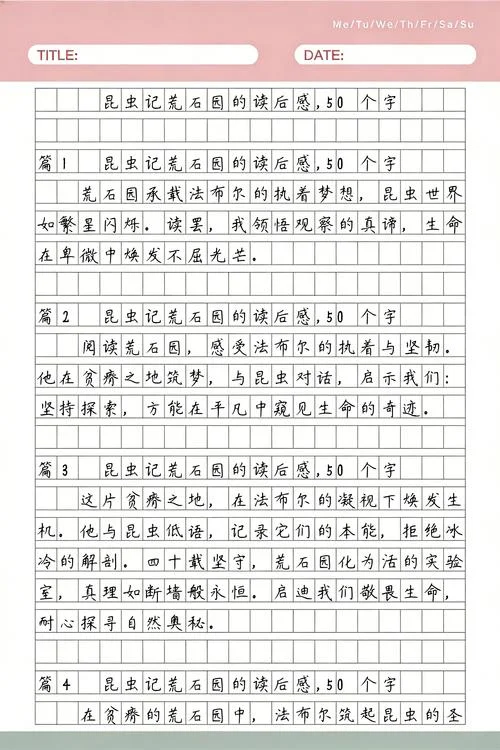 Me/Tu/We/Th/Fr/Sa/Su
TITLE: DATE:
昆虫记荒石园的读后感,50 个字
篇1 昆虫记荒石园的读后感,50 个字
荒石园承载法布尔的执着梦想，昆虫世界
如繁星闪烁。读罢，我领悟观察的真谛，生命
在卑微中焕发不屈光芒。
篇2 昆虫记荒石园的读后感,50 个字
阅读荒石园，感受法布尔的执着与坚韧。
他在贫瘠之地筑梦，与昆虫对话，启示我们：
坚持探索，方能在平凡中窥见生命的奇迹。
篇3 昆虫记荒石园的读后感,50 个字
这片贫瘠之地，在法布尔的凝视下焕发生
机。他与昆虫低语，记录它们的本能，拒绝冰
冷的解剖。四十载坚守，荒石园化为活的实验
室，真理如断墙般永恒。启迪我们敬畏生命，
耐心探寻自然奥秘。
篇4 昆虫记荒石园的读后感,50 个字
在贫瘠的石园中，法布尔筑起昆虫的圣